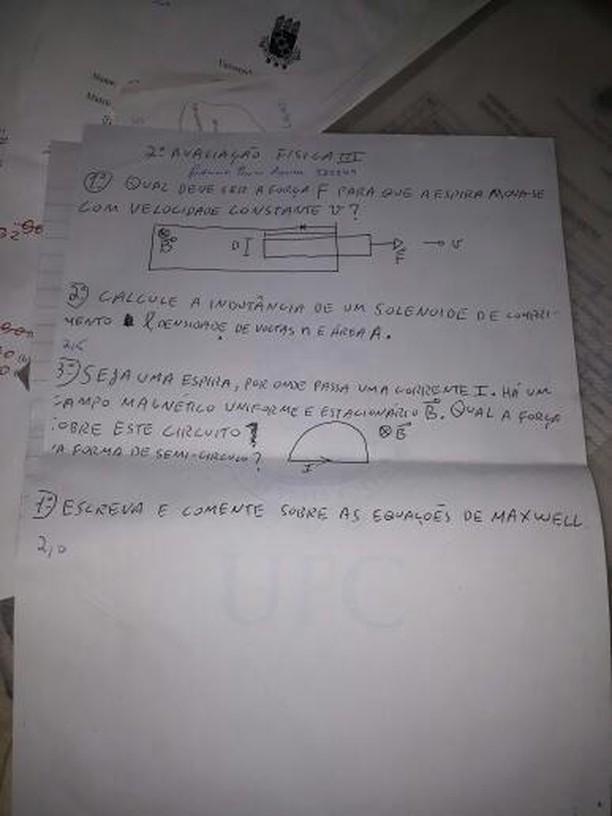 2ª AVALIAÇÃO FÍSICA III
1ª) QUAL DEVE SER A FORÇA F PARA QUE A ESPIRA MOVA-SE
COM VELOCIDADE CONSTANTE V?
B
D
F
V
2ª) CALCULE A INDUTÂNCIA DE UM SOLENOIDE DE COMPRI-
MENTO l DENSIDADE DE VOLTAS n E ÁREA A.
3ª) SEJA UMA ESPIRA, POR ONDE PASSA UMA CORRENTE I. HÁ UM
CAMPO MAGNÉTICO UNIFORME E ESTACIONÁRIO B. QUAL A FORÇA
SOBRE ESTE CIRCUITO?
A FORMA DE SEMI-CIRCULO?
B
I
1ª) ESCREVA E COMENTE SOBRE AS EQUAÇÕES DE MAXWELL
2,0
UFC